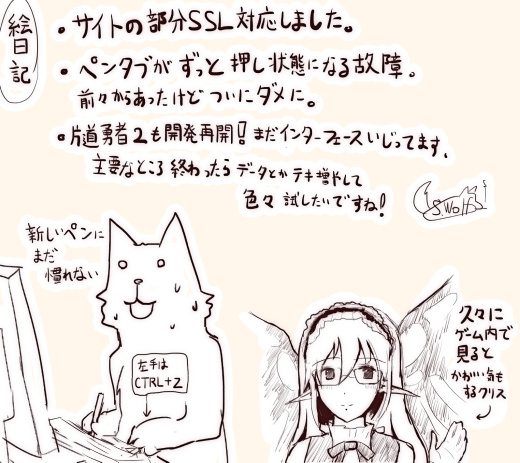 絵日記
・サイトの部分SSL対応しました。
・ペンタブがずっと押し状態になる故障。
前々からあったけどついにダメに。
・片道勇者2も開発再開!まだインターフェースいじってます。
主要なところ終わったらデータとかテキ増やして
色々試したいですね!
SWolf
新しいペンに
まだ
慣れない
左手は
CTRL+Z
久々に
ゲーム内で
見ると
かわいい気も
するクリス